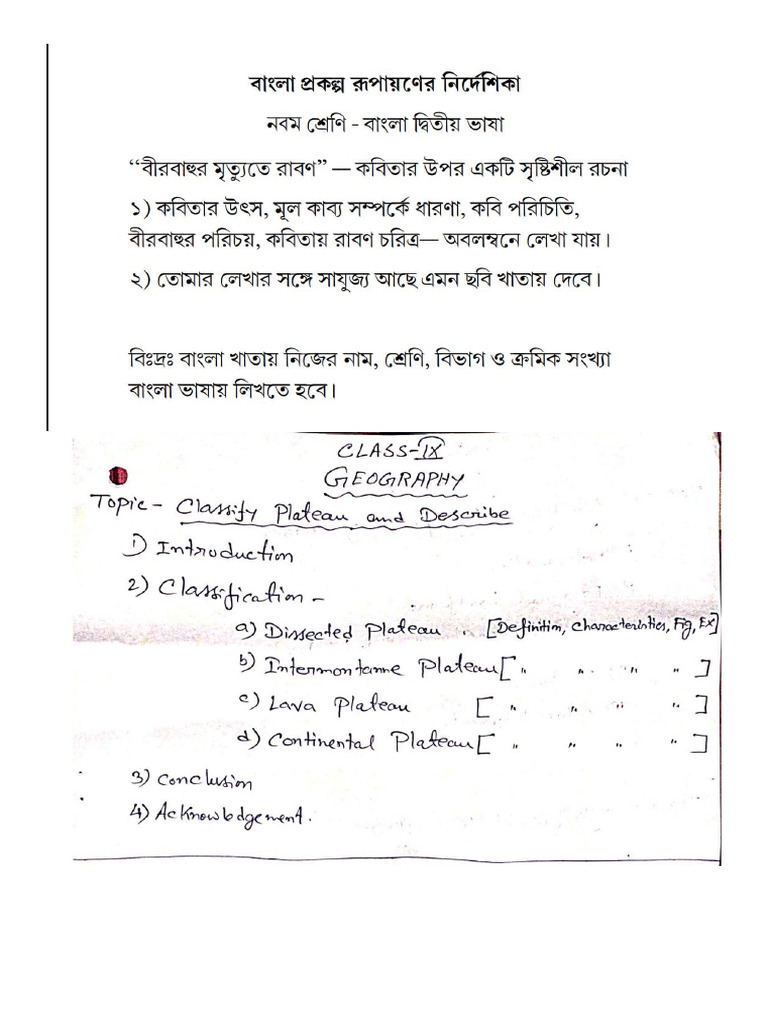 বাংলা প্রকল্প রূপায়ণের নির্দেশিকা
নবম শ্রেণি - বাংলা দ্বিতীয় ভাষা
“বীরবাহুর মৃত্যুতে রাবণ” — কবিতার উপর একটি সৃষ্টিশীল রচনা
১) কবিতার উৎস, মূল কাব্য সম্পর্কে ধারণা, কবি পরিচিতি,
বীরবাহুর পরিচয়, কবিতায় রাবণ চরিত্র— অবলম্বনে লেখা যায়।
২) তোমার লেখার সঙ্গে সাযুজ্য আছে এমন ছবি খাতায় দেবে।
বিঃদ্রঃ বাংলা খাতায় নিজের নাম, শ্রেণি, বিভাগ ও ক্রমিক সংখ্যা
বাংলা ভাষায় লিখতে হবে।
CLASS-IX
GEOGRAPHY
Topic - Classify Plateau and Describe
1) Introduction
2) Classification -
a) Dissected Plateau [Definition, Characteristics, Fig, Ex]
b) Intermontanne Plateau [ " " " " ]
c) Lava Plateau [ " " " " ]
d) Continental Plateau [ " " " " ]
3) Conclusion
4) Acknowledgement.